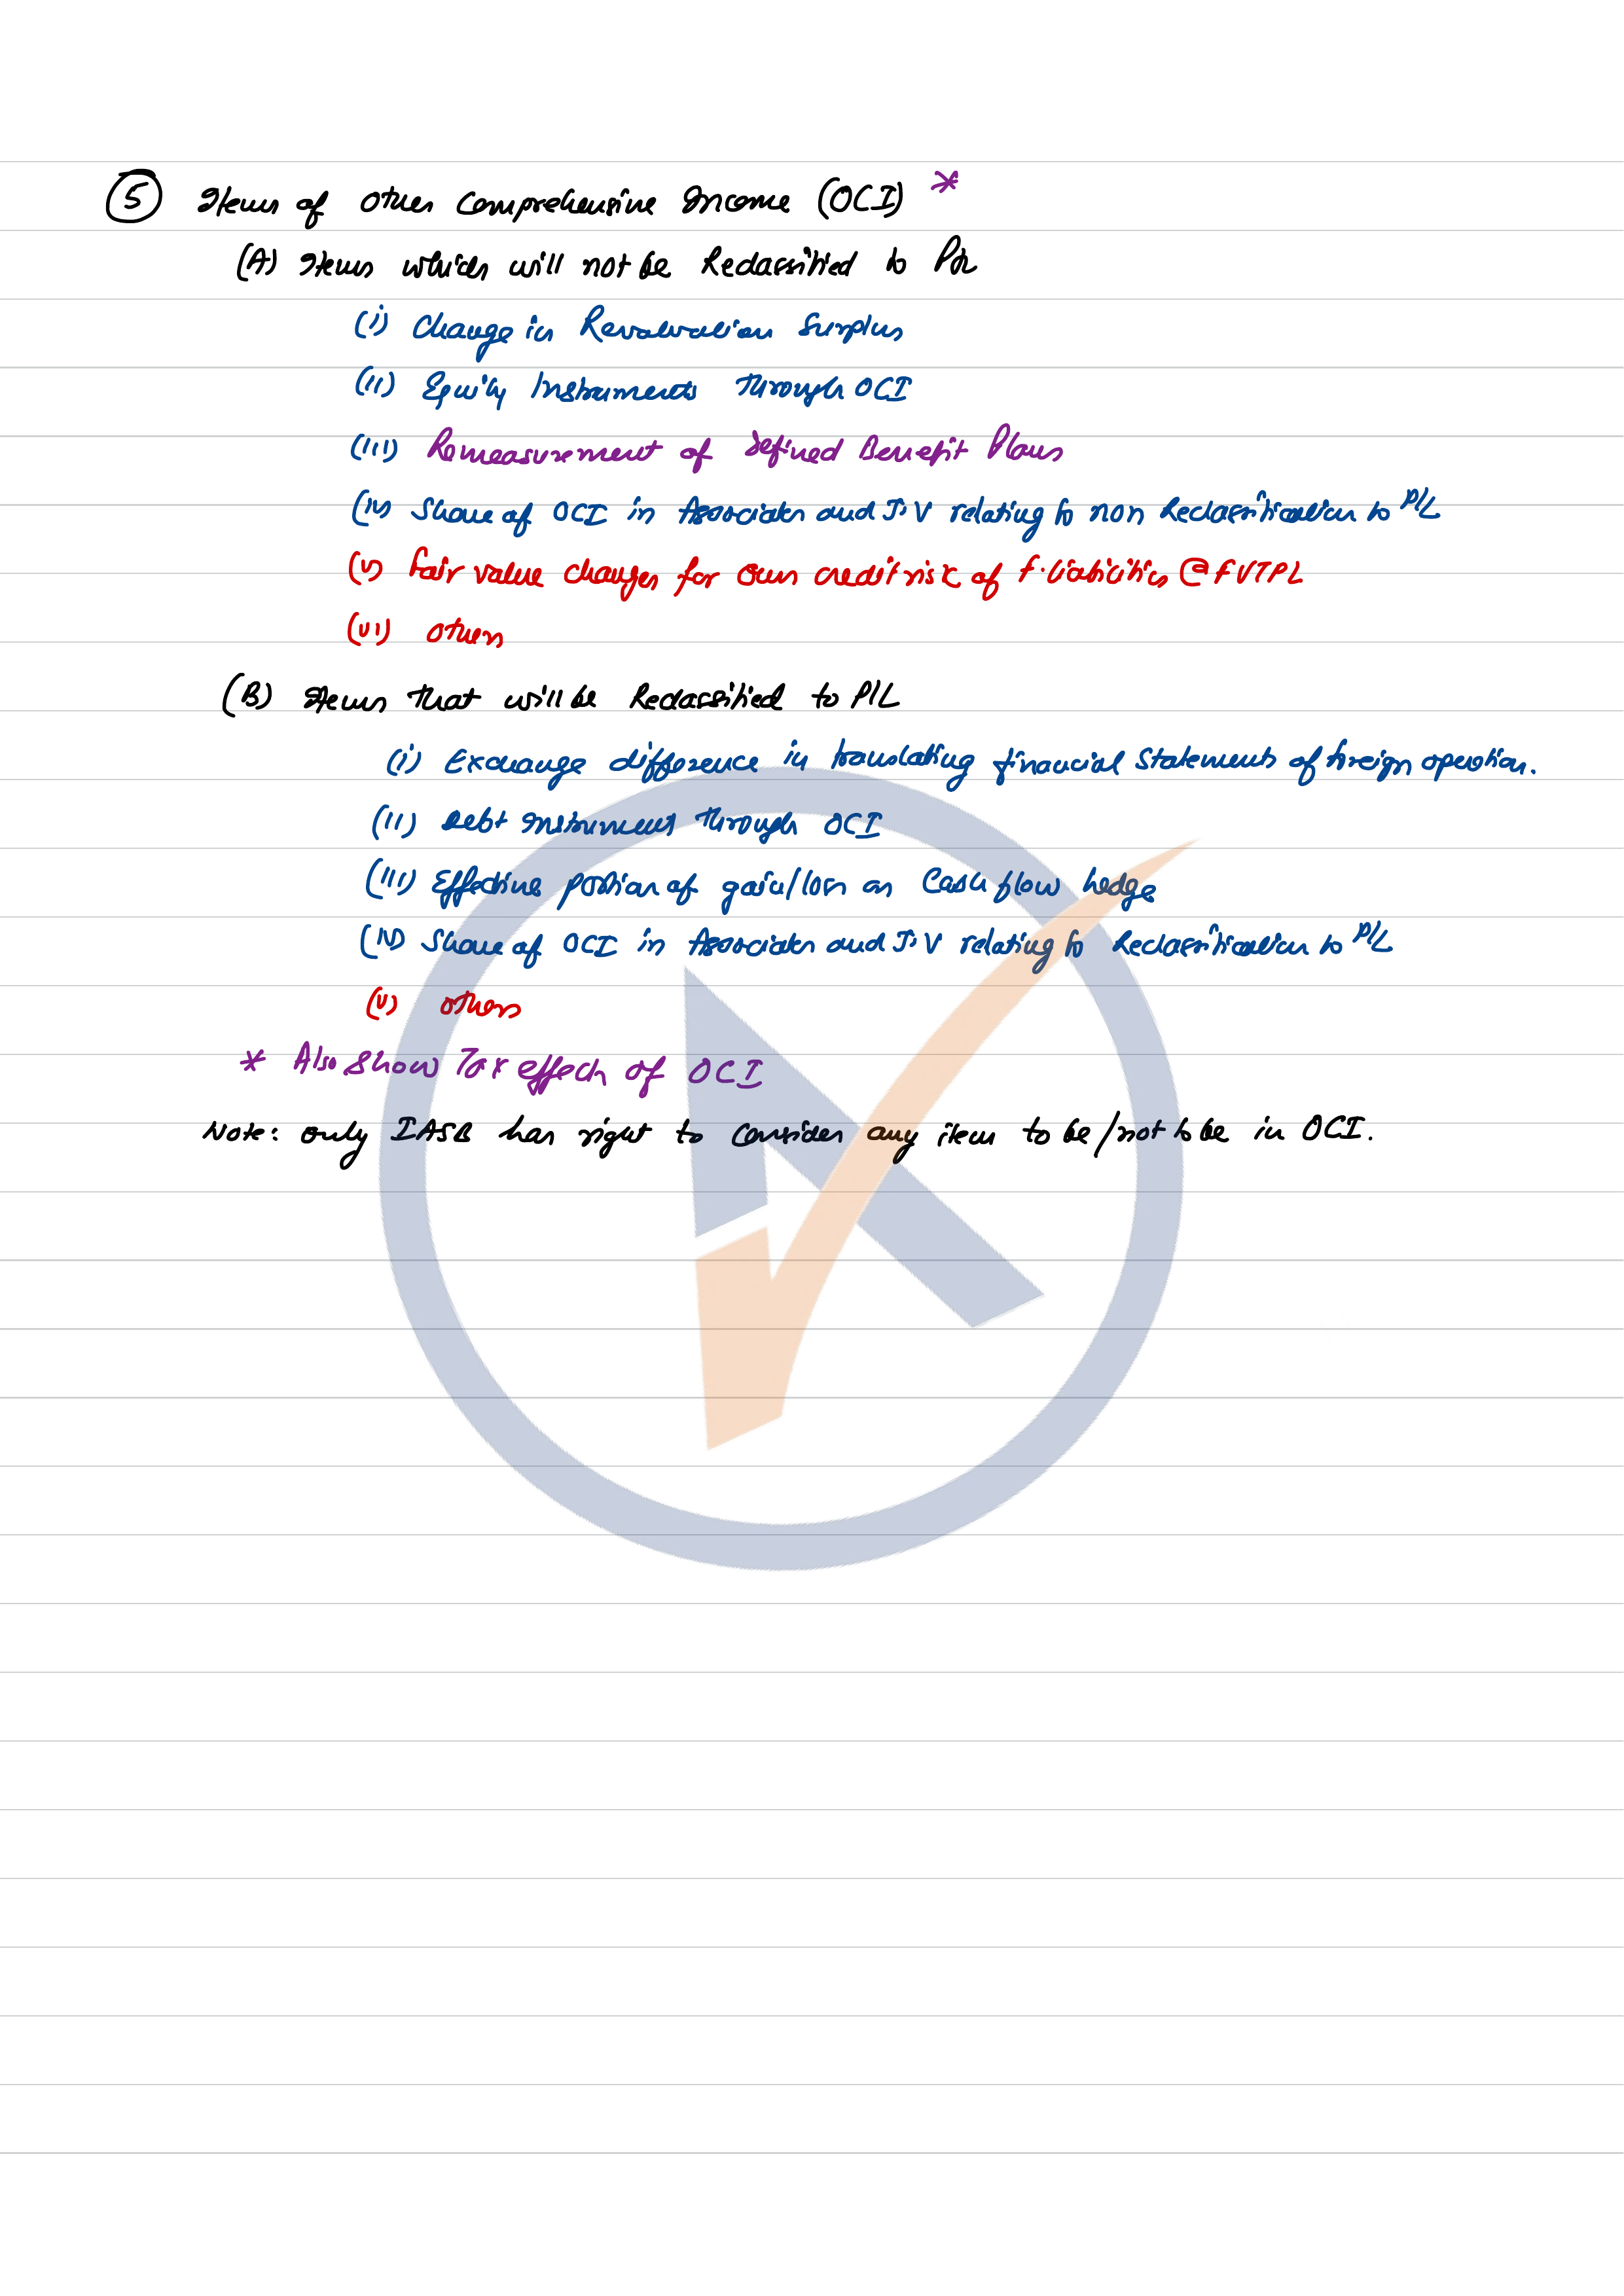 5 Items of Other Comprehensive Income (OCI) *
(A) Items which will not be Reclassified to P/L
(i) Change in Revaluation Surplus
(ii) Equity Instruments Through OCI
(iii) Remeasurement of Defined Benefit Plans
(iv) Share of OCI in Associates and J.V relating to non Reclassification to P/L
(v) Fair value changes for own credit risk of F. Liabilities @ FVTPL
(vi) others
(B) Items That will be Reclassified to P/L
(i) Exchange difference in translating financial Statements of foreign operation.
(ii) Debt Instrument Through OCI
(iii) Effective portion of gain/loss on Cash flow hedge
(iv) Share of OCI in Associates and J.V relating to Reclassification to P/L
(v) others
* Also Show Tax effects of OCI
Note: only IASB has right to consider any item to be/not to be in OCI.